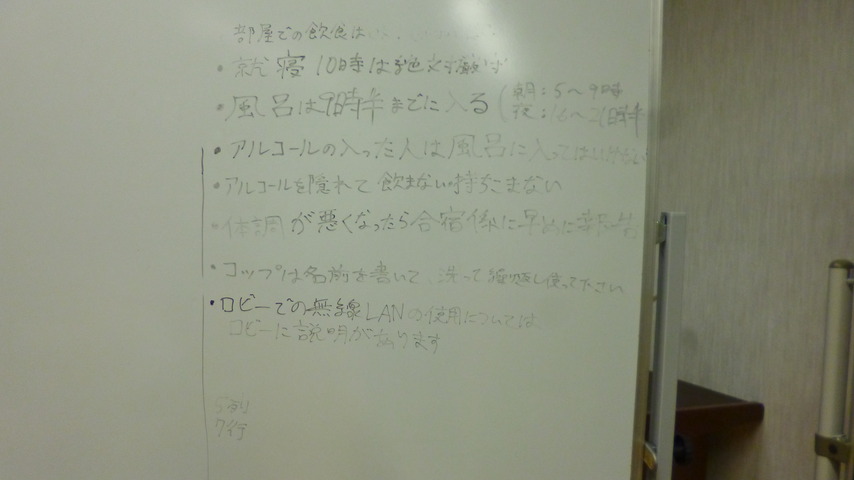 部屋での飲食は
・就寝 10時は絶対厳守
・風呂は9時半までに入る (朝:5〜9時
夜:16〜21時半
・アルコールの入った人は風呂に入ってはいけない
・アルコールを隠れて飲まない持ちこまない
・体調が悪くなったら合宿係に早めに
・コップは名前を書いて、洗って繰返し使って下さい
・ロビーでの無線LANの使用については
ロビーに説明が有ります
5列
7行